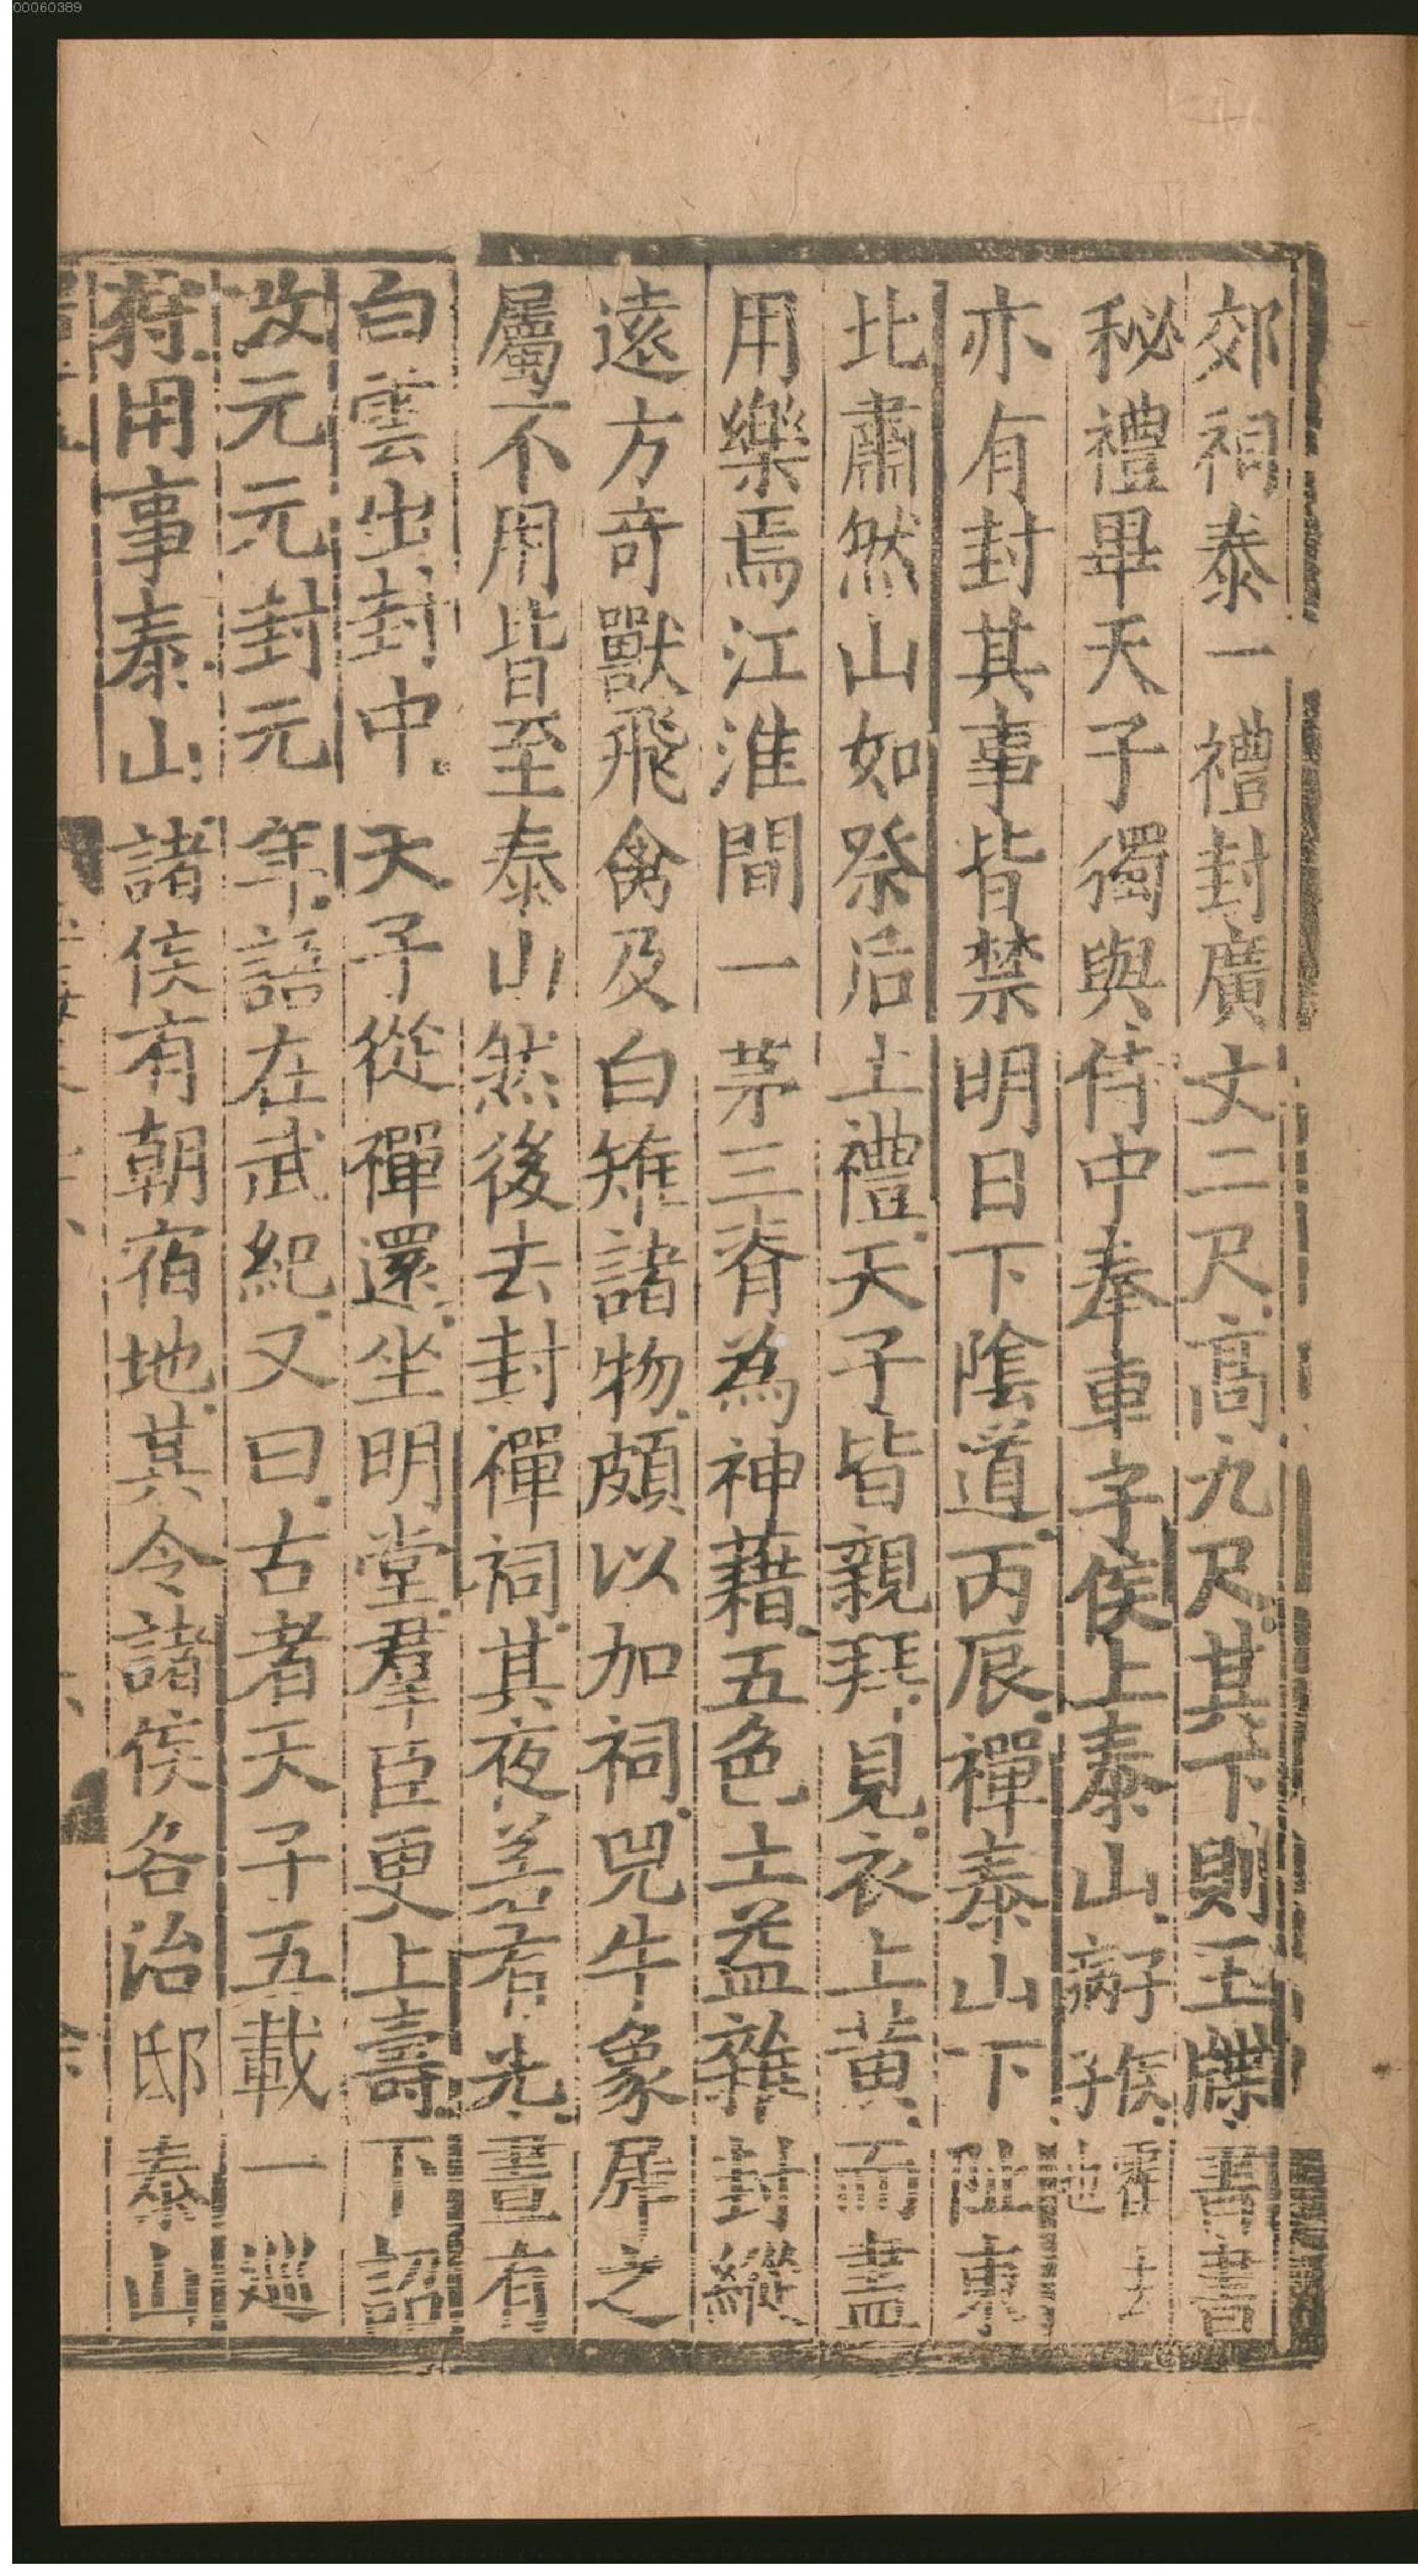 郊祠泰一禮封廣丈二尺高九尺其下則玉牒書書
秘禮畢天子獨與侍中奉車子侯上泰山霍去病子子侯也
亦有封其事皆禁明日下陰道丙辰禪泰山下阯東
北肅然山如祭后土禮天子皆親拜見衣上黃而盡
用樂焉江淮間一茅三脊為神藉五色土益雜封縱
遠方奇獸飛禽及白雉諸物頗以加祠兕牛象犀之
屬不用皆至泰山然後去封禪祠其夜若有光晝有
白雲出封中天子從禪還坐明堂羣臣更上壽下詔
改元元封元年語在武紀又曰古者天子五載一巡
狩用事泰山諸侯有朝宿地其令諸侯各治邸泰山
00060389